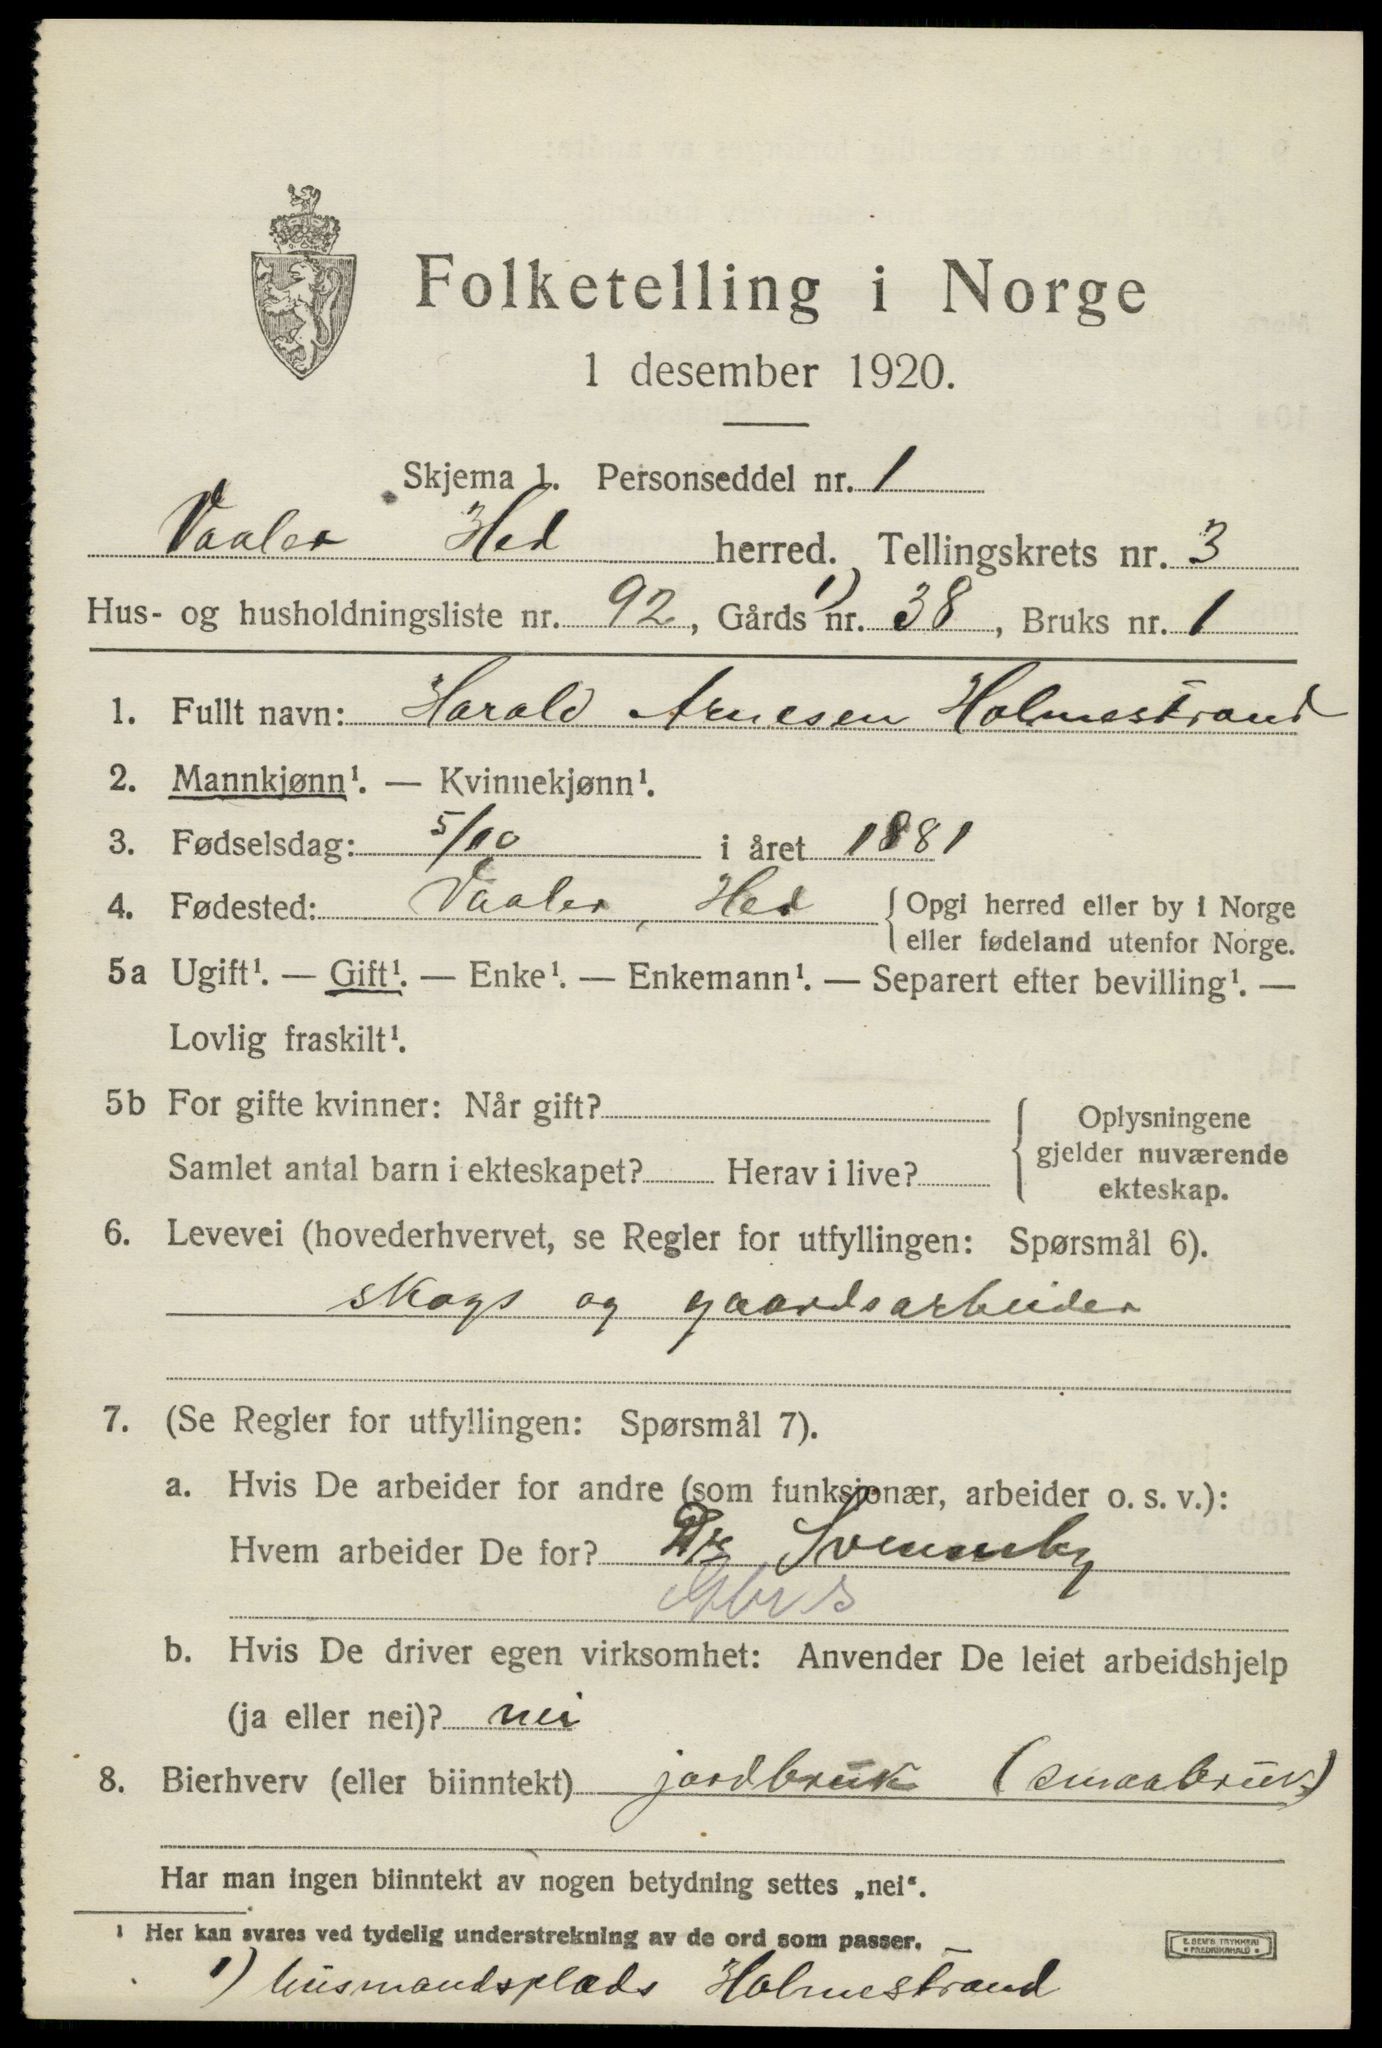 Folketelling i Norge
1 desember 1920.
Skjema 1. Personseddel nr. 1
Vaaler Hed herred. Tellingskrets nr. 3
Hus- og husholdningsliste nr. 92, Gårds nr. 1) 38, Bruks nr. 1
1. Fullt navn: Harald Arnesen Holmestrand
2. Mannkjønn¹. — Kvinnekjønn¹.
3. Fødselsdag: 5/10 i året 1881
4. Fødested: Vaaler, Hed { Opgi herred eller by i Norge
eller fødeland utenfor Norge.
5a Ugift¹. — Gift¹. — Enke¹. — Enkemann¹. — Separert efter bevilling¹. —
Lovlig fraskilt¹.
5b For gifte kvinner: Når gift?
Samlet antal barn i ekteskapet? Herav i live?
{ Oplysningene
gjelder nuværende
ekteskap.
6. Levevei (hovederhvervet, se Regler for utfyllingen: Spørsmål 6).
skogs og gaardsarbeider
7. (Se Regler for utfyllingen: Spørsmål 7).
a. Hvis De arbeider for andre (som funksjonær, arbeider o. s. v.):
Hvem arbeider De for? Svenneby
b. Hvis De driver egen virksomhet: Anvender De leiet arbeidshjelp
(ja eller nei)? nei
8. Bierhverv (eller biinntekt) jordbruk (smaabruk)
Har man ingen biinntekt av nogen betydning settes „nei“.
¹ Her kan svares ved tydelig understrekning av de ord som passer.
E. SEM'S TRYKKERI
FREDRIKSHALD
1) husmandsplads Holmestrand